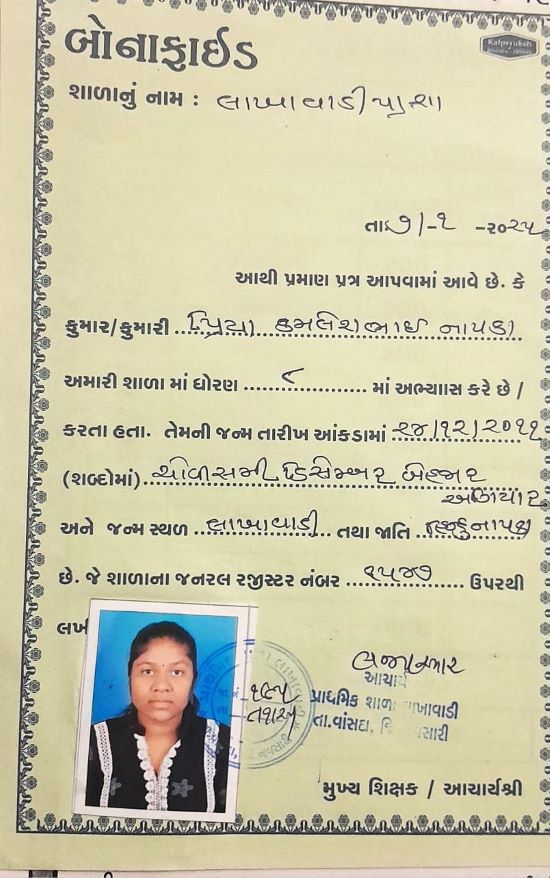 બોનાફાઇડ
Kalpvruksh
શાળાનું નામ : લાખાવાડી પ્રા.શા
તા ૭/-૧ -૨૦૨૫
આથી પ્રમાણ પત્ર આપવામાં આવે છે. કે
કુમાર/કુમારી પ્રિયા કમલેશભાઇ નાયકા
અમારી શાળા માં ધોરણ ૮ માં અભ્યાસ કરે છે /
કરતા હતા. તેમની જન્મ તારીખ આંકડામાં ૨૪/૧૨/૨૦૧૧
(શબ્દોમાં) ચોવીસમી ડિસેમ્બર બેહજાર
અગિયાર
અને જન્મ સ્થળ લાખાવાડી તથા જાતિ હિન્દુ નાયકા
છે. જે શાળાના જનરલ રજીસ્ટર નંબર ૧૫૪૭ ઉપરથી
લખી
આચાર્ય
પ્રાથમિક શાળા લાખાવાડી
તા.વાંસદા, જિ નવસારી
મુખ્ય શિક્ષક / આચાર્યશ્રી